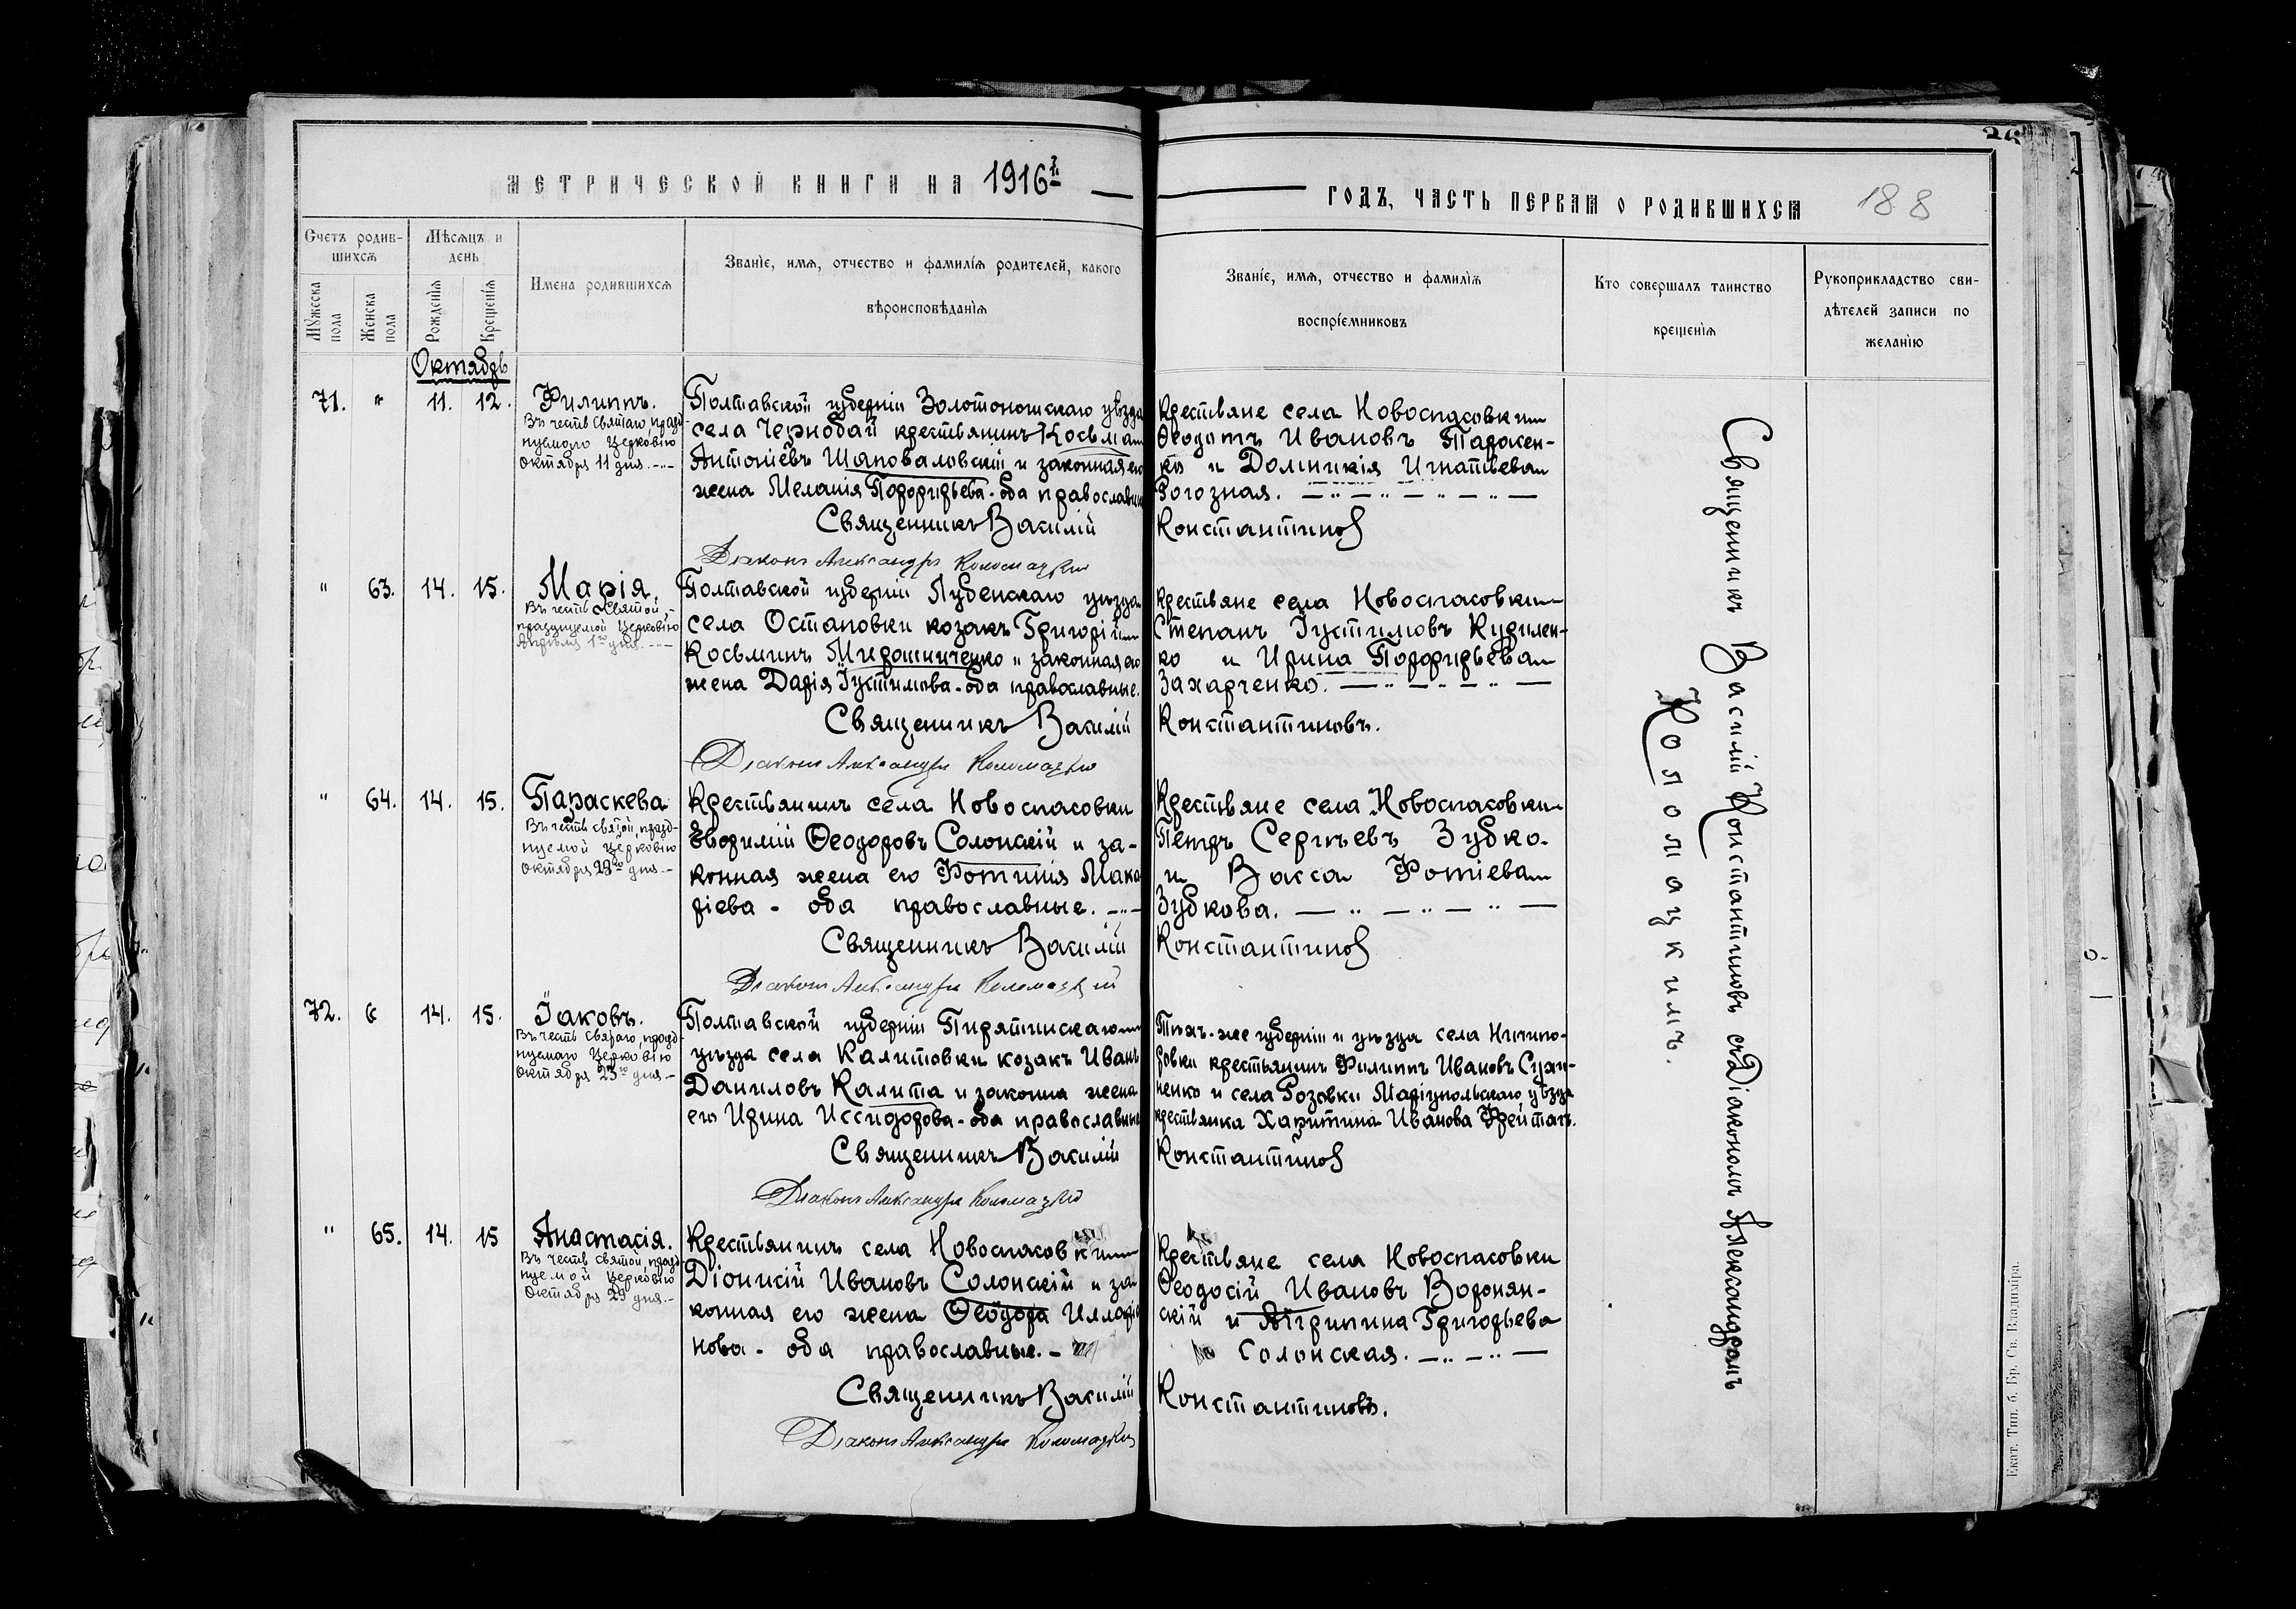 МЕТРИЧЕСКОЙ КНИГИ НА 1916й
ГОДЪ, ЧАСТЬ ПЕРВАЯ О РОДИВШИХСЯ 188
Счетъ родив-
шихся
Мужеска
пола
Женска
пола
Мѣсяцъ и
день
Рожденія
Крещенія
Имена родившихся
Званіе, имя, отчество и фамилія родителей, какого
вѣроисповѣданія
Званіе, имя, отчество и фамилія
воспріемниковъ
Кто совершалъ таинство
крещенія
Рукоприкладство сви-
дѣтелей записи по
желанію
Октябрь
71. " 11. 12. Филиппъ.
Въ честь Святаго, празд-
нуемого Церковію
октября 11 дня.
Полтавской губерніи Золотоношскаго уѣзда
села Чернобай крестьянинъ Косьма
Антоніевъ Шаповаловскій и законная его
жена Меланія Порфирьева - оба православны
Священникъ Василій
Діаконъ Александръ Коломацкій
Крестьяне села Новоспасовки
Ѳеодотъ Ивановъ Тарасен-
ко и Домникія Игнатьева
Рогозная.
Константинов
" 63. 14. 15. Марія.
Въ честь Святой,
празднуемой Церковію
Апрѣля 1го дня.
Полтавской губерніи Лубенскаго уѣзда
села Остаповки козакъ Григорій
Косьминъ Мирошниченко и законная его
жена Дарія Іустинова - оба православные.
Священникъ Василій
Діаконъ Александръ Коломацкій
Крестьяне села Новоспасовки
Степанъ Іустиновъ Кирилен-
ко и Ирина Порфирьева
Захарченко.
Константиновъ.
" 64. 14. 15. Параскева
Въ честь святой, празд-
нуемой церковію
октября 28го дня.
Крестьянинъ села Новоспасовки
Евфимій Ѳеодоровъ Солонскій и за-
конная жена его Фотинія Мака
ріева - оба православные.
Священникъ Василій
Діаконъ Александръ Коломацкій
Крестьяне села Новоспасовки
Петръ Сергѣевъ Зубко.
и Васса Фотіева
Зубкова.
Константинов
72. " 14. 15. Іаковъ.
Въ честь Святаго, празд-
нуемаго Церковію
октября 23го дня
Полтавской губерніи Пирятинскаго
уѣзда села Калитовки козакъ Иванъ
Даниловъ Калита и законна жена
его Ирина Иссидорова - оба православные
Священникъ Василій
Діаконъ Александръ Коломацкій
Той-же губерніи и уѣзда села Ничипо-
ровки крестьянинъ Филиппъ Ивановъ
ненко и села Розовки Маріупольскаго уѣзда
крестьянка Харитина Иванова Фрейтагъ.
Константинов
" 65. 14. 15 Анастасія.
Въ честь Святой, празд-
нуемой Церковію
Октября 29 дня.
Крестьянинъ села Новоспасовки
Діонисій Ивановъ Солонскій и за
конная его жена Ѳеодора Илларіо
нова - оба православные.
Священникъ Василій
Діаконъ Александръ Коломацкій
Крестьяне села Новоспасовки
Ѳеодосій Ивановъ Воронян-
скій и Агрипина Григорьева
Солонская.
Константиновъ.
Священникъ Василій Константиновъ съ Діакономъ Александромъ
Коломацкимъ.
Екат. Тип. б. Бр. Св. Владиміра.